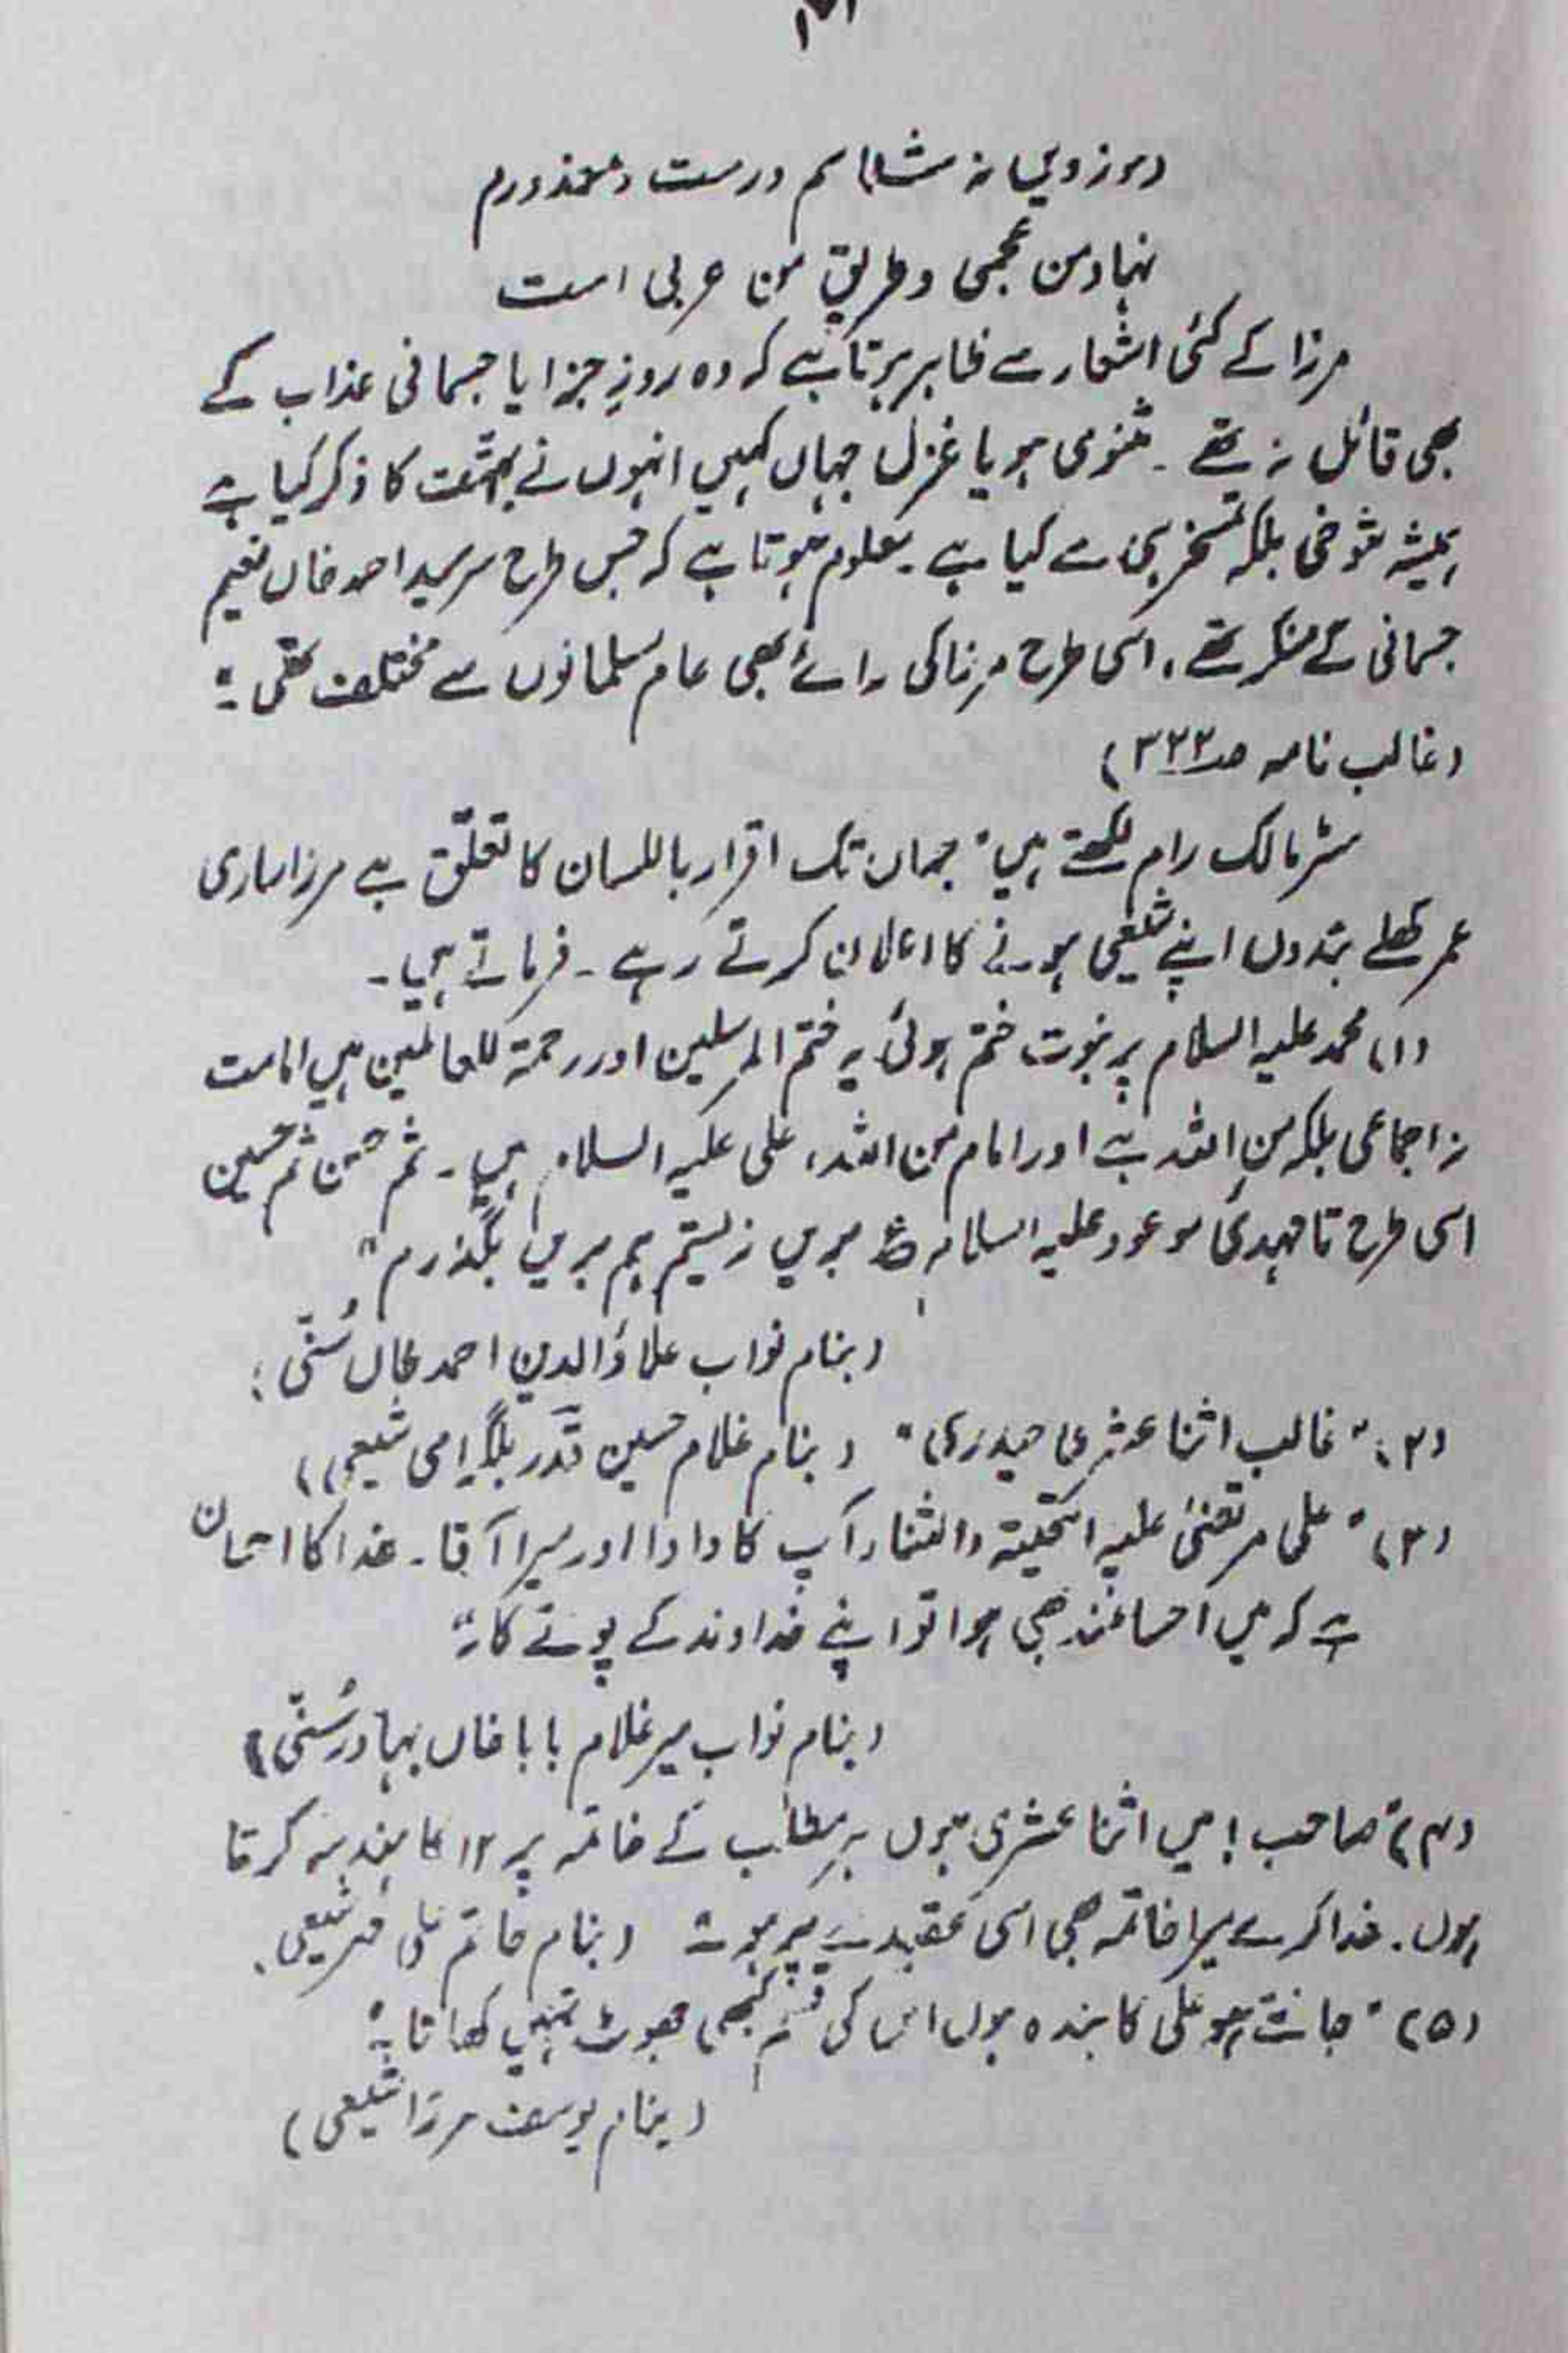 رموز دیں نہ شناسم درست و معذورم
نہاد من عجمی و طریق من عربی است
مرزا کے کئی اشعار سے ظاہر ہوتا ہے کہ وہ روزِ جزا یا جسمانی عذاب کے
بھی قائل نہ تھے ۔ مثنوی ہو یا غزل جہاں کہیں انہوں نے بہشت کا ذکر کیا ہے
ہمیشہ شوخی بلکہ تمسخر ہی سے کیا ہے ۔ معلوم ہوتا ہے کہ جس طرح سرسید احمد خاں نعیم
جسمانی کے منکر تھے ، اسی طرح مرزا کی رائے بھی عام مسلمانوں سے مختلف تھی ۔"
(غالب نامہ صہ ۳۲۳)
مسٹر مالک رام لکھتے ہیں " جہاں تک اقرار باللسان کا تعلّق ہے مرزا ساری
عمر کھلے بندوں اپنے شیعی ہونے کا اعلان کرتے رہے ۔ فرماتے ہیں ۔
(۱) محمد علیہ السلام پر نبوت ختم ہوئی یہ ختم المرسلین اور رحمۃ للعالمین ہیں امامت
نہ اجماعی بلکہ من اللہ ہے اور امام من اللہ ، علی علیہ السلام ہیں ۔ ثم حسن ثم حسین
اسی طرح تا مہدیٔ موعود علیہ السلام ع بریں زیستم ہم بریں بگذرم "
(بنام نواب علاؤالدین احمد خاں سُنّی)
(۲) " غالب اثنا عشری حیدری " (بنام غلام حسین قدر بلگرامی شیعی)
(۳) " علی مرتضیٰ علیہ التحیتہ والثناء آپ کا دادا اور میرا آقا ۔ خدا کا احسان
ہے کہ میں احسانمند بھی ہوا تو اپنے خداوند کے پوتے کا ۔"
(بنام نواب میر غلام بابا خاں بہادر سُنّی)
(۴) " صاحب ! میں اثنا عشری ہوں ہر مطلب کے خاتمہ پر ۱۲ کا ہندسہ کرتا
ہوں ۔ خدا کرے میرا خاتمہ بھی اسی عقیدے پر ہو ۔" (بنام حاتم علی مہر شیعی)
(۵) " جانتے ہو علی کا بندہ ہوں اس کی قسم کبھی جھوٹ نہیں کھاتا ۔"
(بنام یوسف مرزا شیعی)